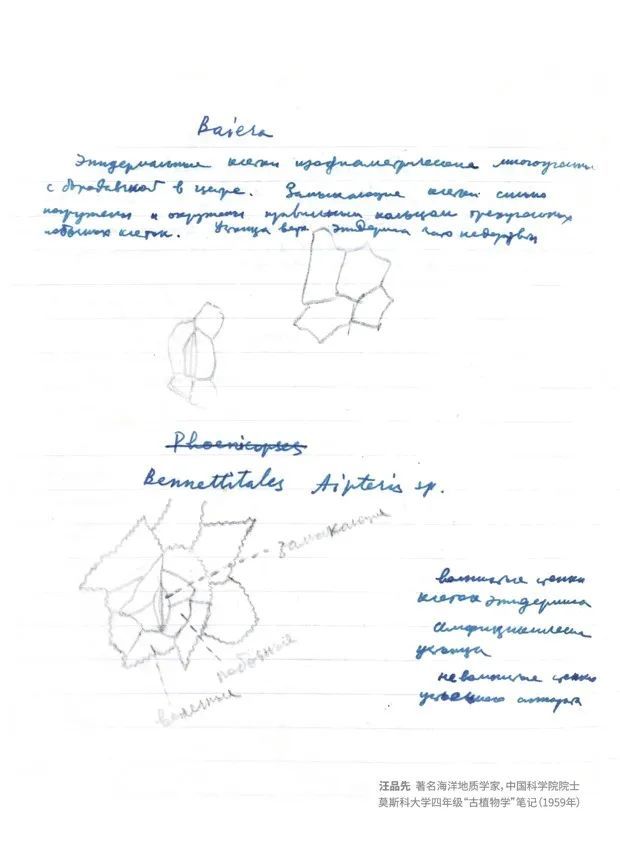 Baiera
Эпидермальные клетки изодиаметрические многоугольн
с бородавкой в центре. Замыкающие клетки сильно
погружены и окружены правильным кольцом треугольных
побочных клеток. Устьица верх. эпидермиса
Phoenicopses
Bennettitales Aipteris sp.
замыкающие
побочные
волнистые стенки
клеток эпидермиса
амфициклические
устьица
неволнистые стенки
устьичного аппарата
汪品先 著名海洋地质学家,中国科学院院士
莫斯科大学四年级“古植物学”笔记(1959年)